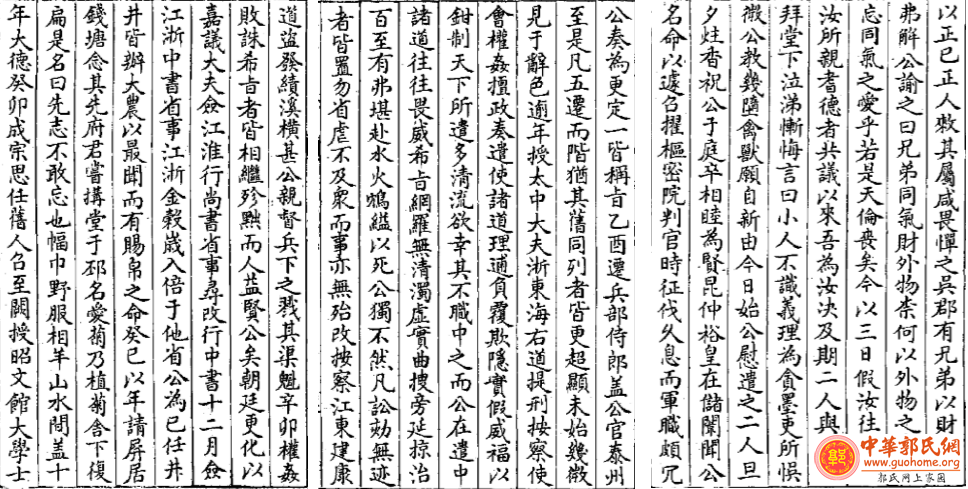 以正已正人敕其屬咸畏憚之吳郡有兄弟以財
弗解公諭之曰兄弟同氣財外物柰何以外物之
忘同氣之愛乎若是天倫喪矣今以三日假汝往
汝所親耆德者共議以來吾為汝決及期二人與
拜堂下泣涕慚悔言曰小人不識義理為貪墨吏所悞
微公教幾墮禽獸願自新由今日始公慰遣之二人旦
夕炷香祝公于庭卒相睦為賢昆仲裕皇在儲闈聞公
名命以遽召擢樞密院判官時征伐久息而軍職頗冗
公奏為更定一皆稱旨乙酉遷兵部侍郎盖公官泰州
至是凡五遷而階猶其舊同列者皆更超顯未始幾微
見于辭色逾年授太中大夫浙東海右道提刑按察使
會權姦擅政奏遣使諸道理逋負覆欺隱實假威福以
鉗制天下所遣多清流欲幸其不職中之而公在遣中
諸道往往畏威希旨網羅無清濁虛實曲搜旁延掠治
百至有弗堪赴水火鴆縊以死公獨不然凡訟劾無迹
者皆置勿省虐不及衆而事亦無殆改按察江東建康
道盜發績溪橫甚公親督兵下之戮其渠魁辛卯權姦
敗誅希旨者皆相繼殄黜而人益賢公矣朝廷更化以
嘉議大夫僉江淮行尚書省事尋改行中書十二月僉
江浙中書省事江浙金穀歲入倍于他省公為已任井
井皆辦大農以最聞而有賜帛之命癸巳以年請屏居
錢塘念其先府君嘗搆堂于邳名愛菊乃植菊舍下復
扁是名曰先志不敢忘也幅巾野服相羊山水間盖十
年大德癸卯成宗思任舊人召至闕授昭文館大學士
中華郭氏網
www.guohome.org
郭氏网上家园